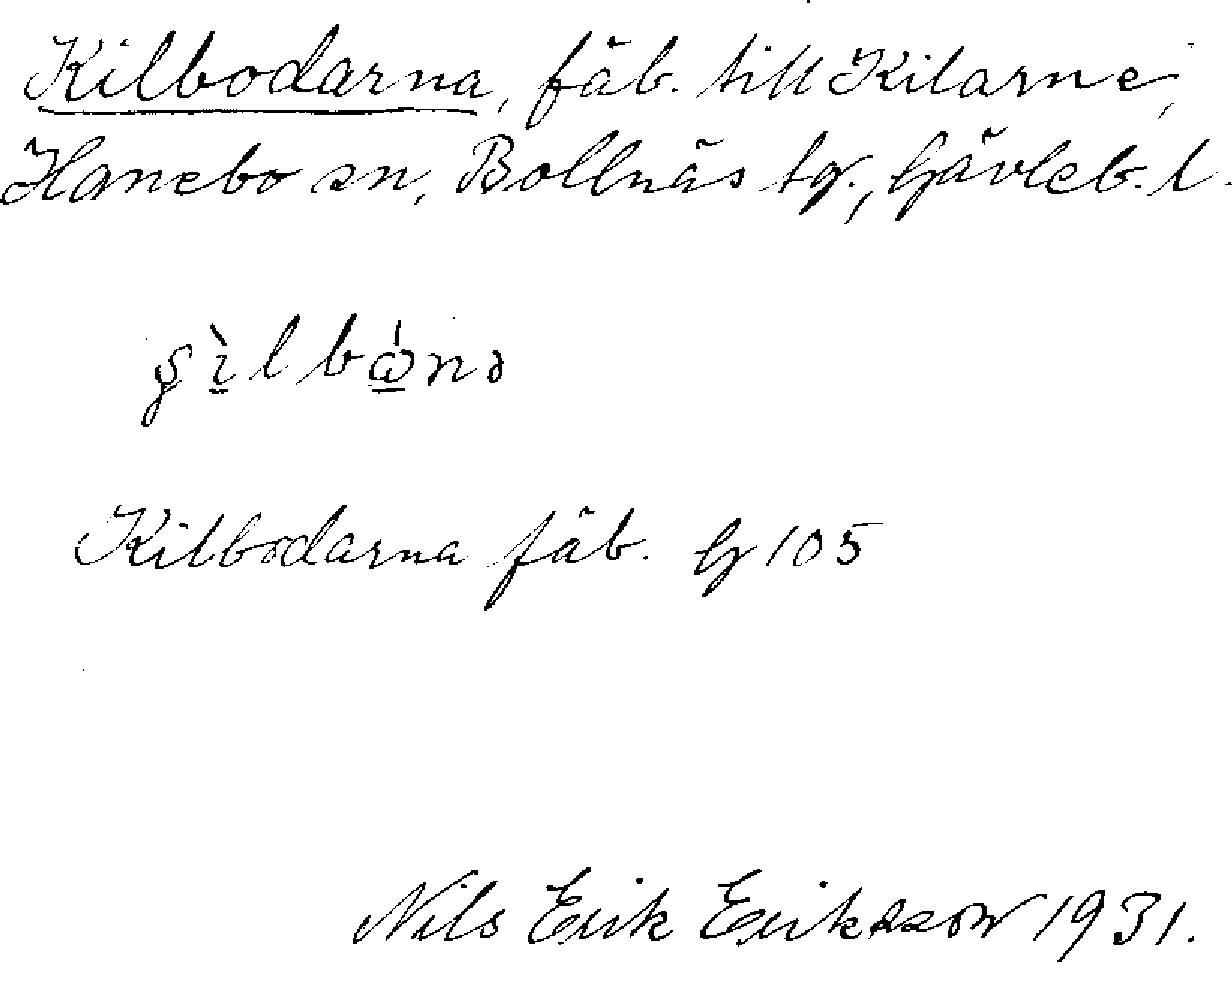 Kilbodarna, fäb. till Kilarne,
Hanebo sn, Bollnäs tg., Gävleb. l.
Kilbodarna fäb. G 105
Nils Erik Eriksson 1931.